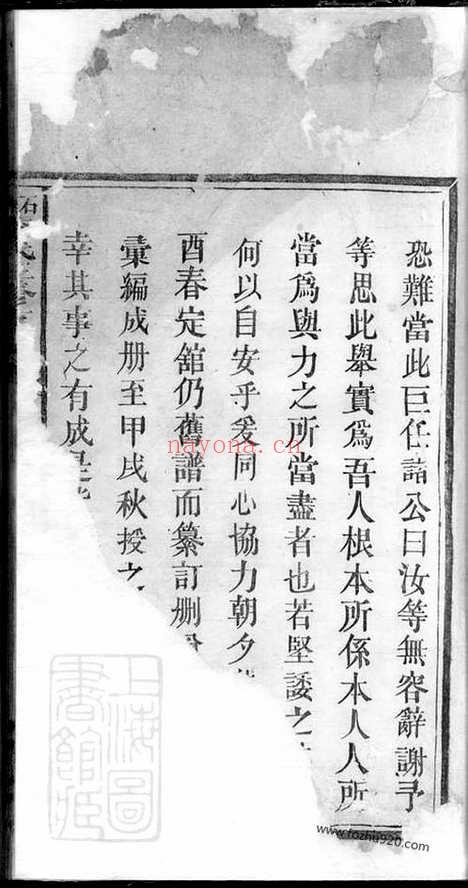 恐難當此巨任諸公曰汝等無容辭謝予
等思此舉實爲吾人根本所係本人人所
當爲與力之所當盡者也若堅諉之
何以自安乎爰同心協力朝夕
酉春定舘仍舊譜而纂訂删
彙編成册至甲戌秋授之
幸其事之有成是
石
上海圖
書館藏
nayona.cn
www.fozhu920.com